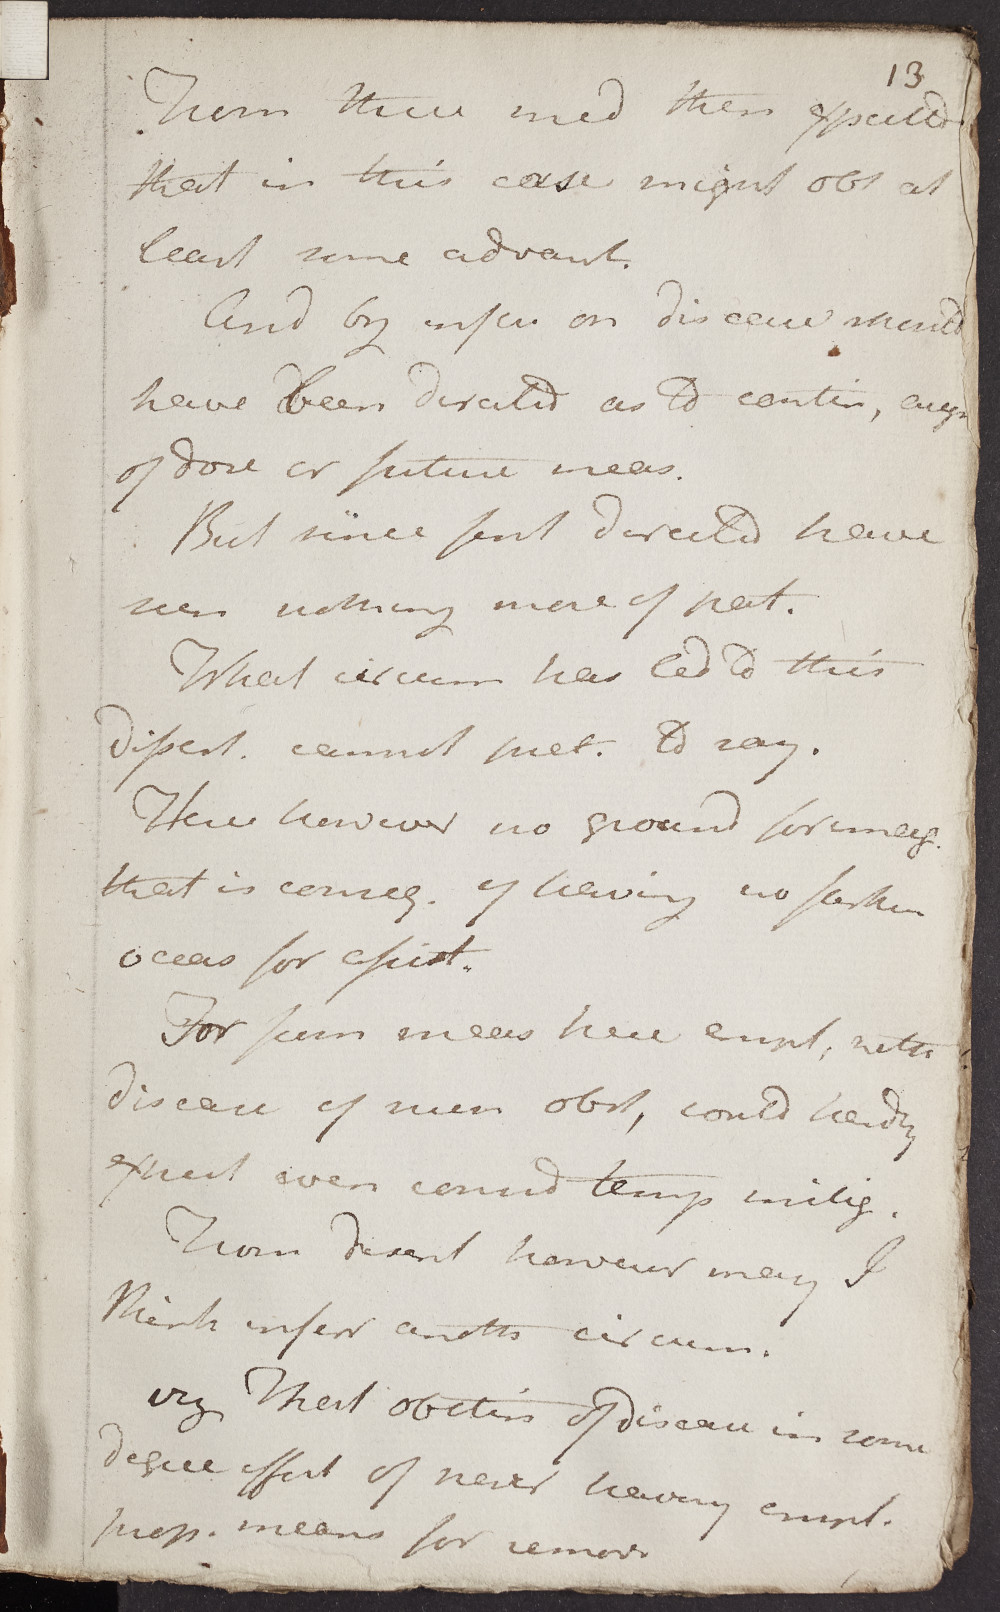 13
From these med then expected
that in this case might obt at
least some advant.
And by infer on disease should
have been directed as to contin, augm
of dose or future meas.
But since first directed have
seen nothing more of pat.
What circum has led to this
desert. cannot pret. to say.
There however no ground for imag.
that is conseq. of having no farther
occas for assist.
For from meas here empl, with
disease of such obst, could hardly
expect even consid temp mitig.
From desert however may I
think infer anoth circum.
viz That obstin of disease in some
degree effect of never having empl.
prop. means for remov